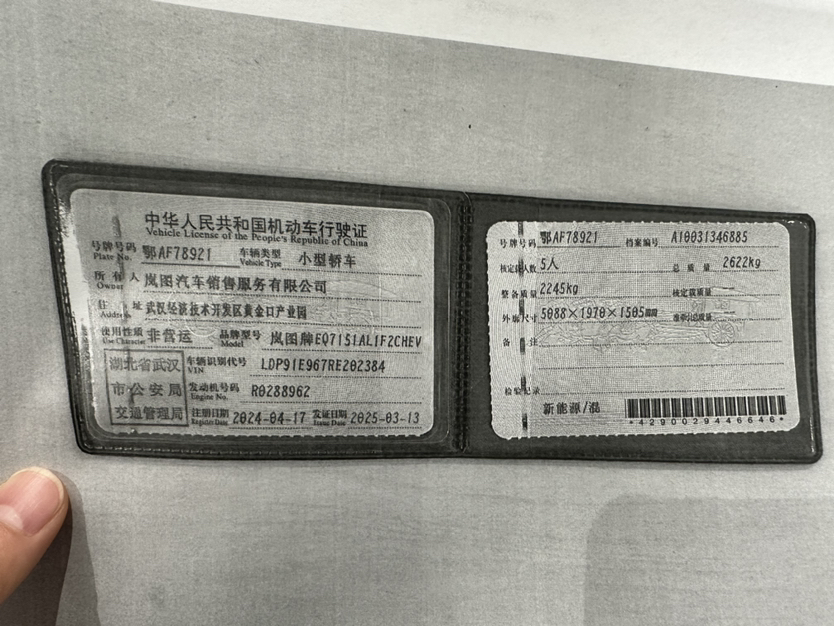 中华人民共和国机动车行驶证
Vehicle License of the People's Republic of China
号牌号码 鄂AF78921 车辆类型 小型轿车
Plate No. Vehicle Type
所有人 岚图汽车销售服务有限公司
Owner
住址 武汉经济技术开发区黄金口产业园
Address
使用性质 非营运 品牌型号 岚图牌EQ7151AL1F2CHEV
Use Character Model
湖北省武汉
市公安局
交通管理局
车辆识别代号 LDP91E967RE202384
VIN
发动机号码 R0288962
Engine No.
注册日期 2024-04-17 发证日期 2025-03-13
Register Date Issue Date
号牌号码 鄂AF78921 档案编号 A10031346885
核定载人数 5人 总质量 2622kg
整备质量 2245kg 核定载质量 --
外廓尺寸 5088×1970×1505mm 准牵引总质量 --
备注
检验记录
新能源/混
*4290029446646*